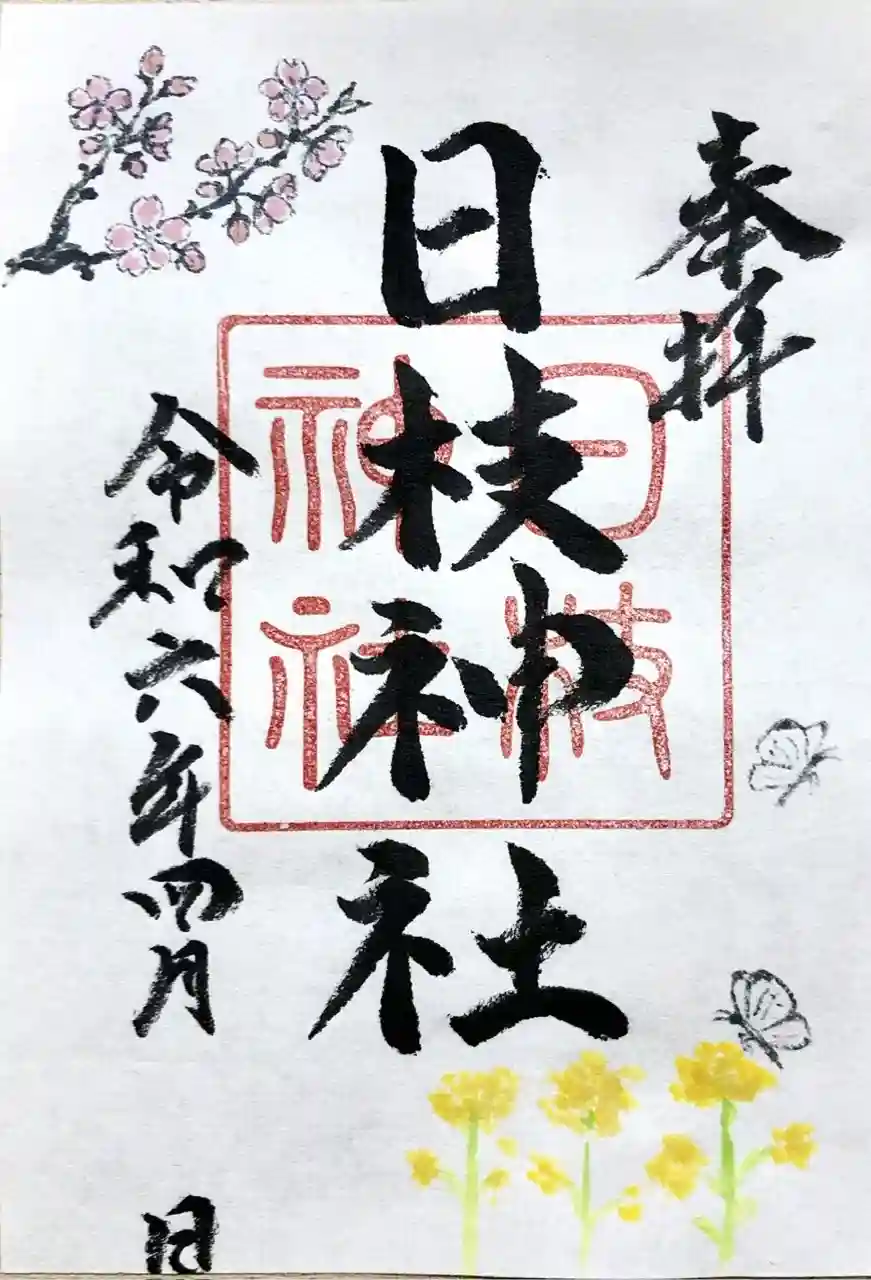 奉拝
日枝神社
日枝
神社
令和六年四月 日